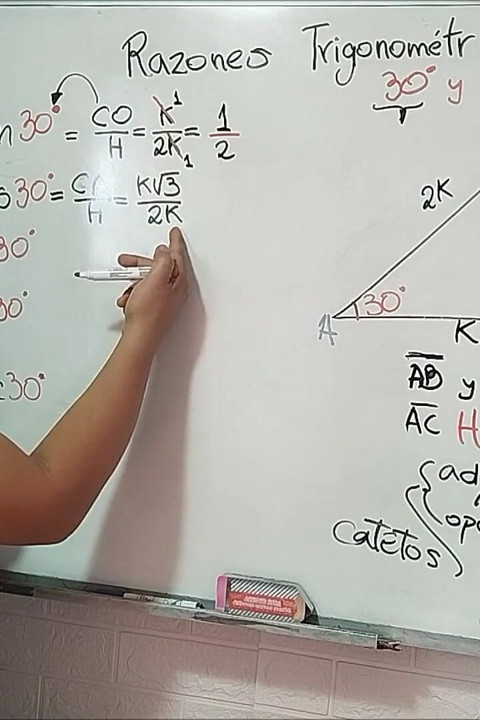 Razones Trigonométr
30° y
n 30° = CO/H = K/2K = 1/2
1
1
s 30° = CA/H = K√3/2K
30°
30°
30°
2K
A 30°
K
AB y
AC H
ad
op
catetos